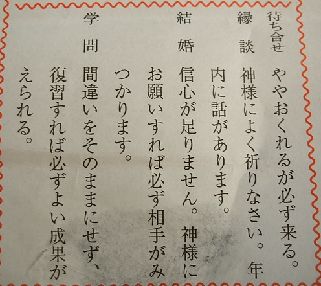 待ち合せ ややおくれるが必ず来る。
縁談 神様によく祈りなさい。年
内に話があります。
結婚 信心が足りません。神様に
お願いすれば必ず相手がみ
つかります。
学問 間違いをそのままにせず、
復習すれば必ずよい成果が
えられる。